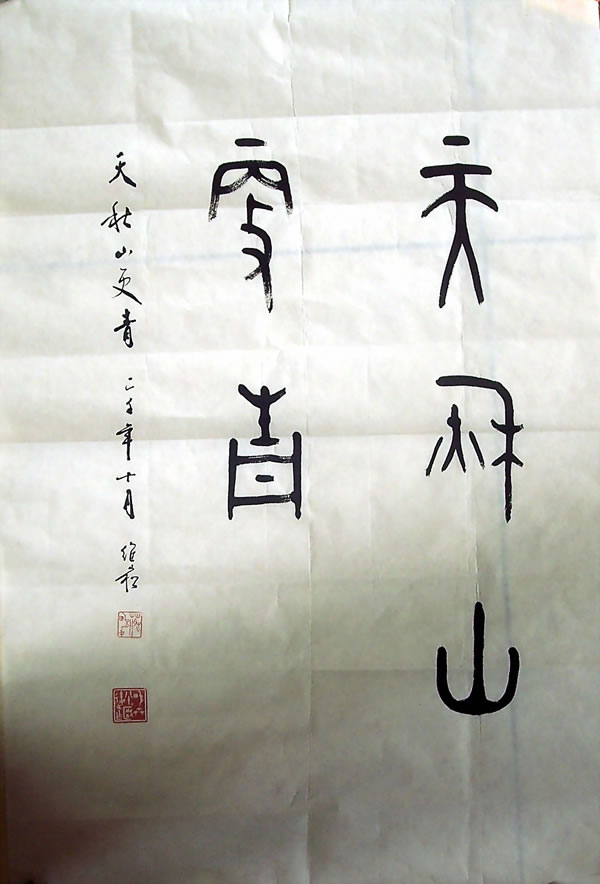 天秋山
更青
天秋山更青 二千年十月